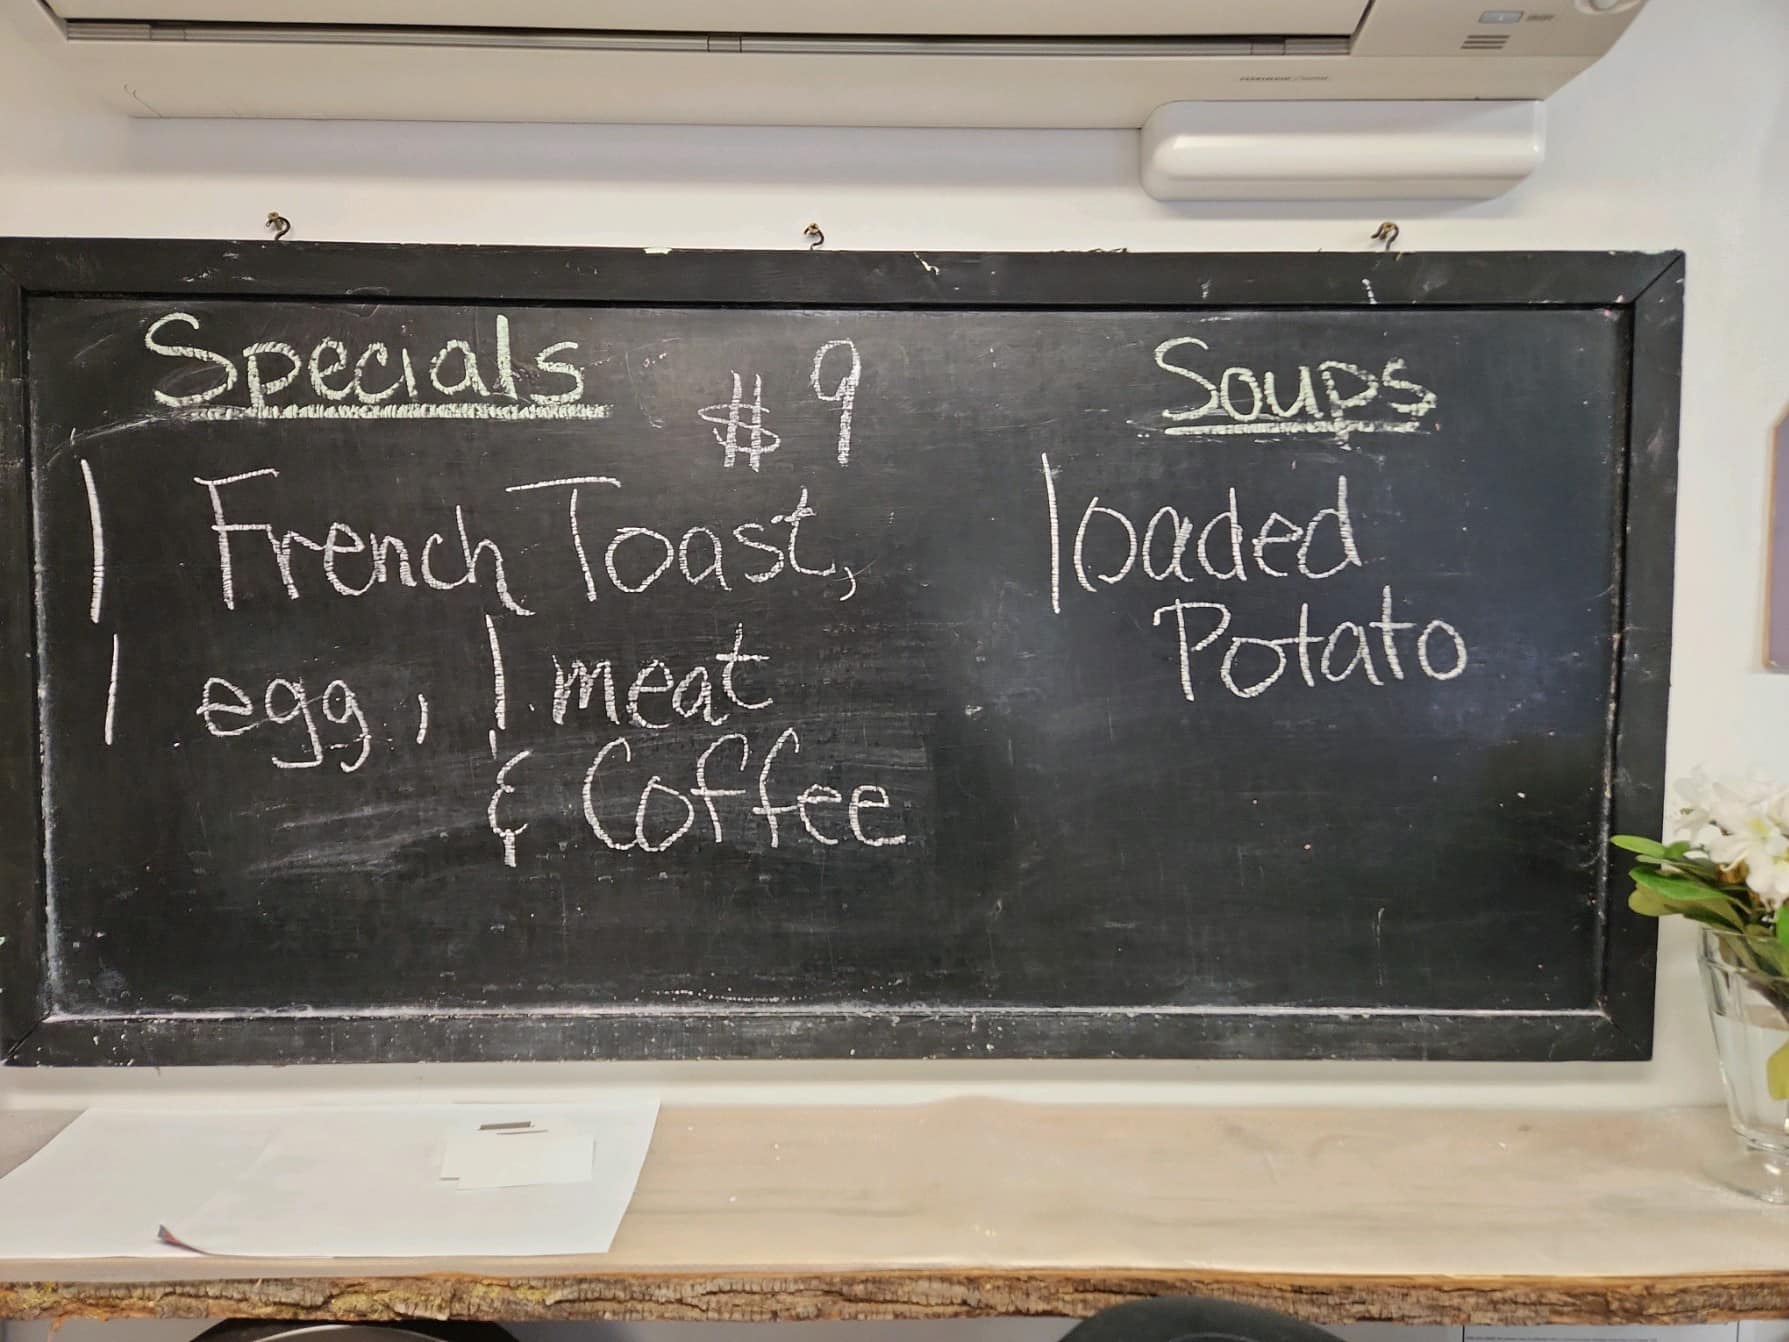 Specials
$9
1 French Toast,
1 egg, 1 meat
& Coffee
Soups
loaded
Potato